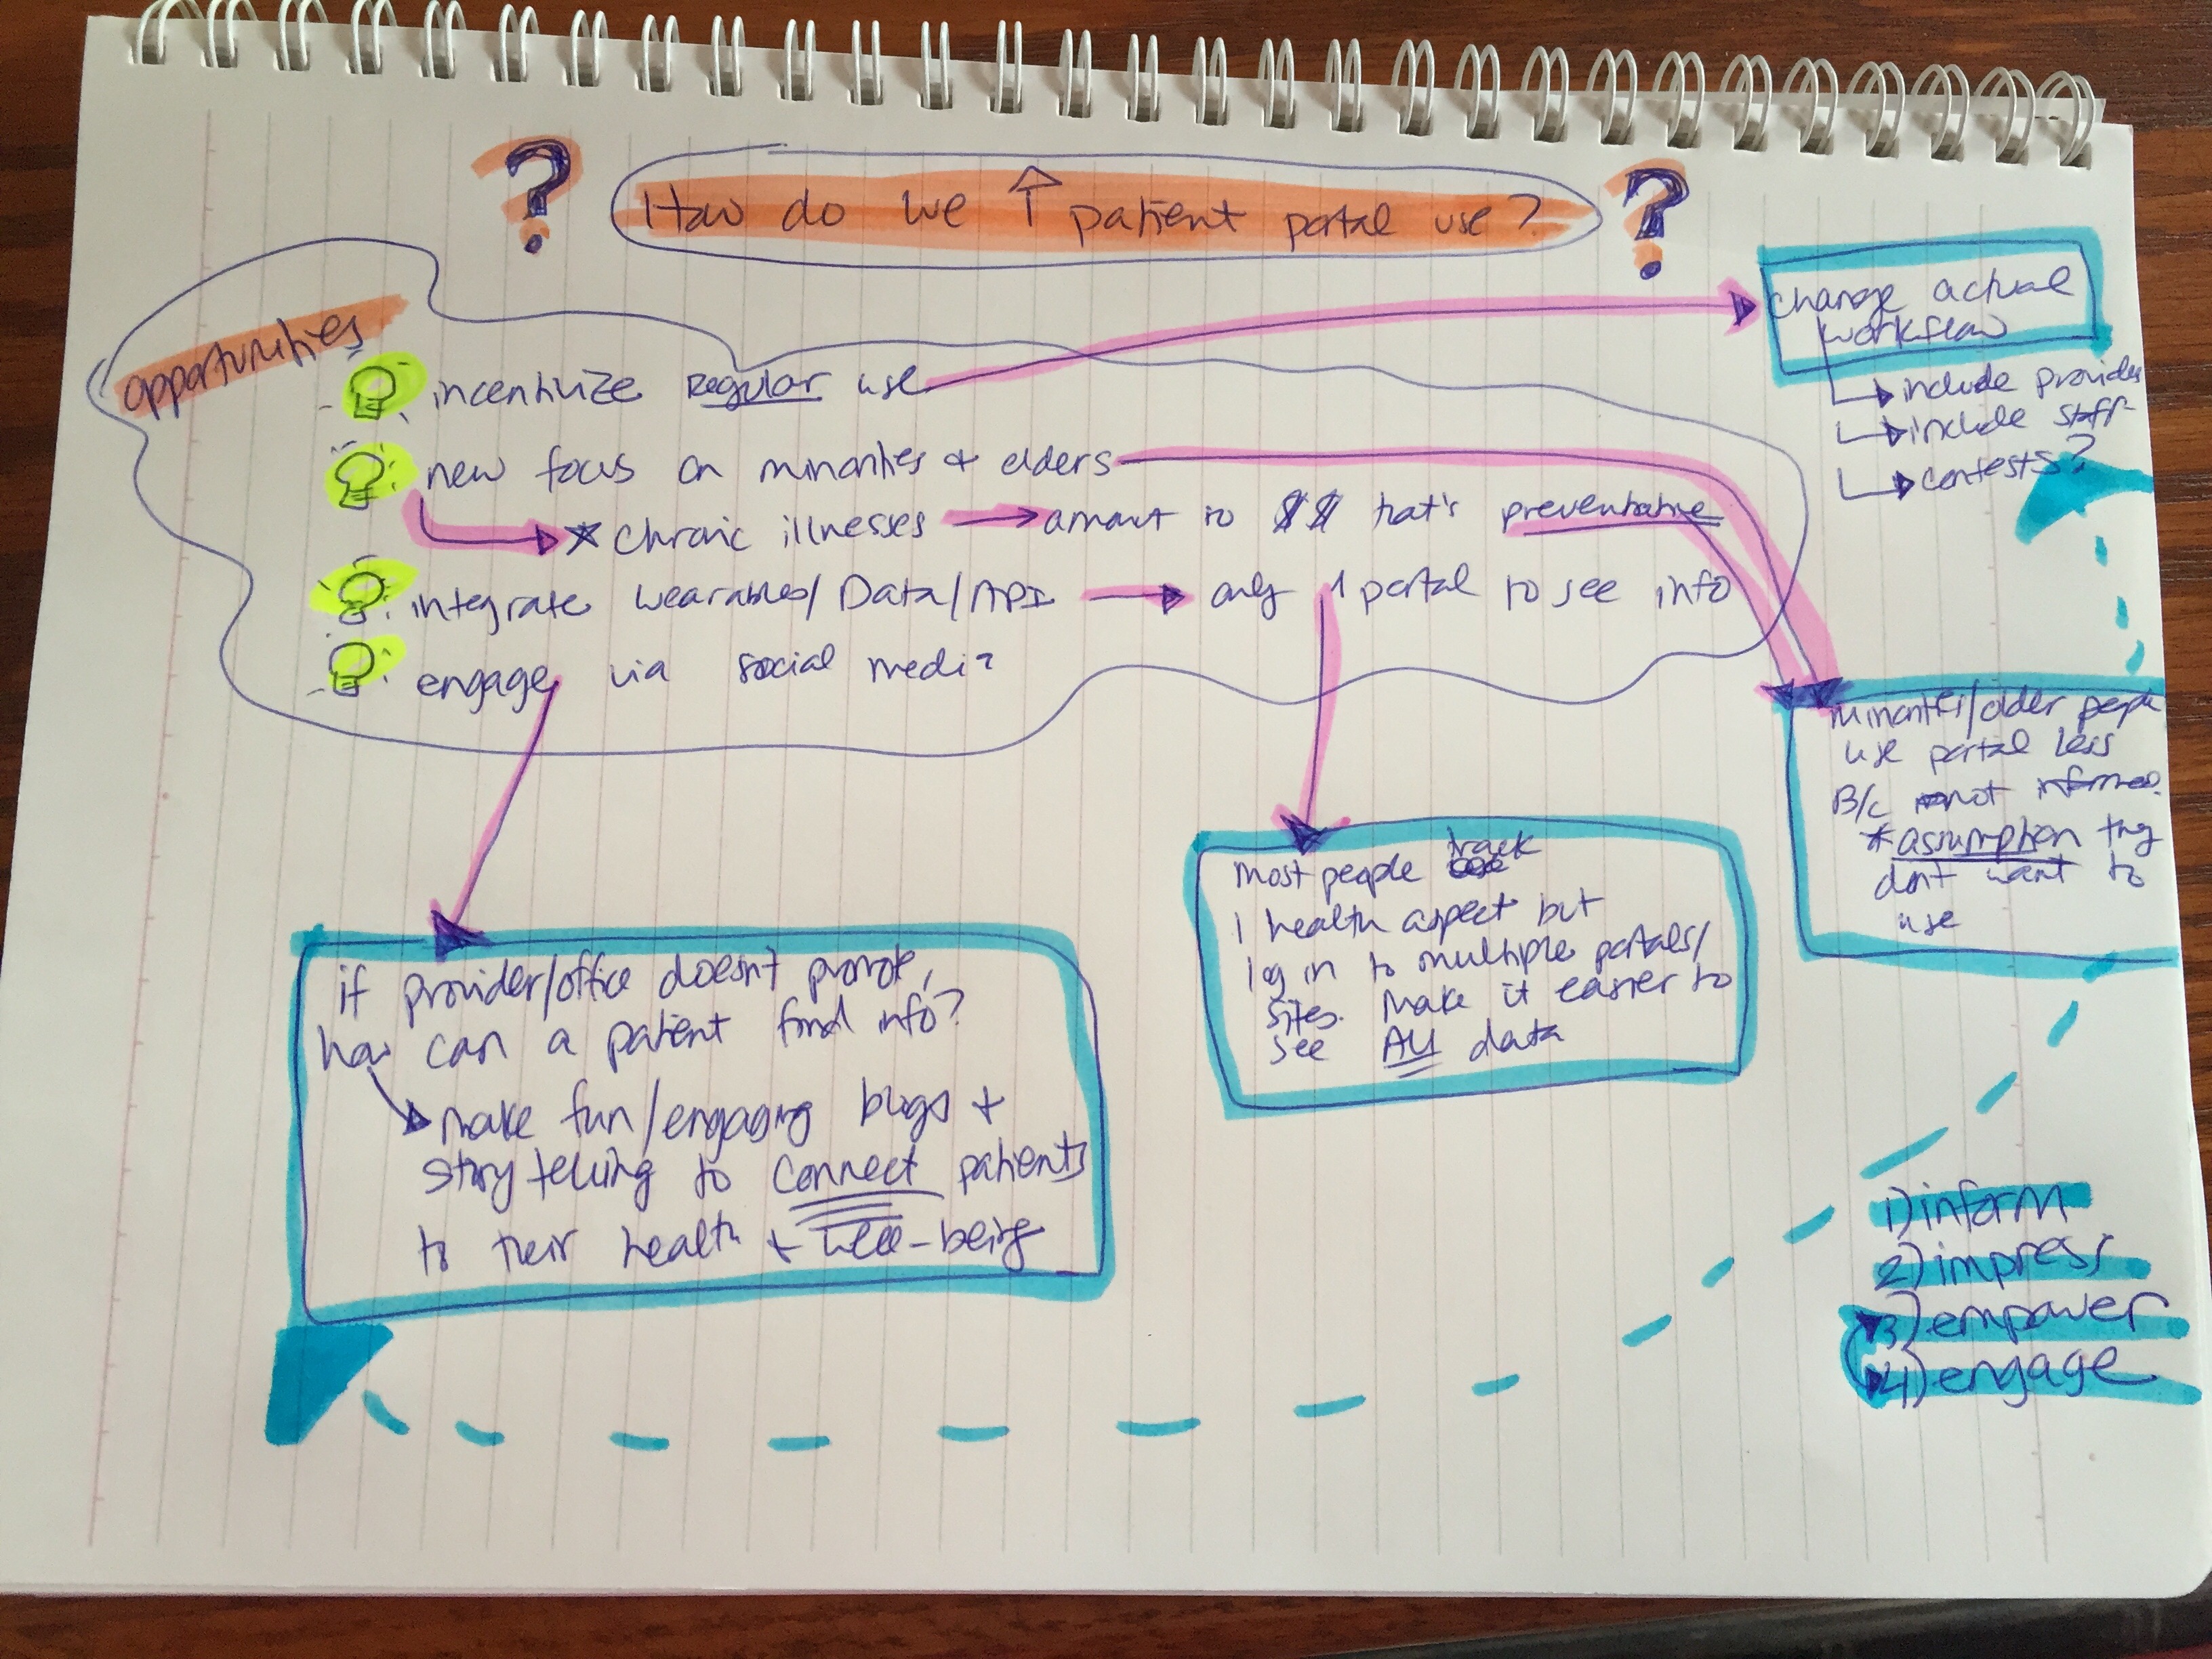 ? How do we ↑ patient portal use? ?
opportunities
incentivize Regular use
new focus on minorities & elders
* Chronic illnesses → amount to $$ that's preventative
integrate wearables/Data/API → only 1 portal to see info
engage via social media
change actual
workflow
include provider
include staff
contests?
minorities/older people
use portal less
B/c not informed.
* assumption they
don't want to
use
most people track
1 health aspect but
log in to multiple portals/
sites. Make it easier to
see All data
if provider/office doesn't promote,
how can a patient find info?
make fun/engaging blogs +
story telling to connect patients
to their health + well-being
1) inform
2) impress
3) empower
4) engage